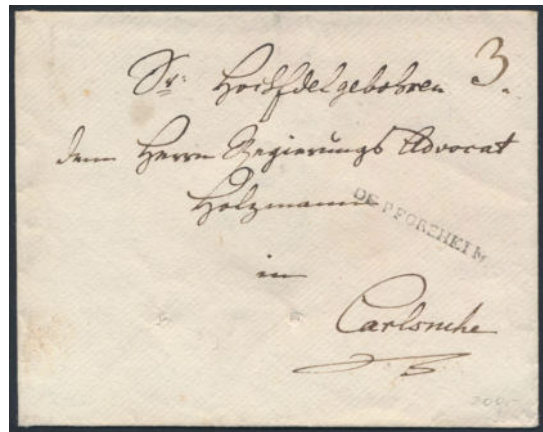 Sr: Hochedelgebohren 3.
dem Herrn Regierungs Advocat
Holzmann
DE PFORZHEIM
in
Carlsruhe